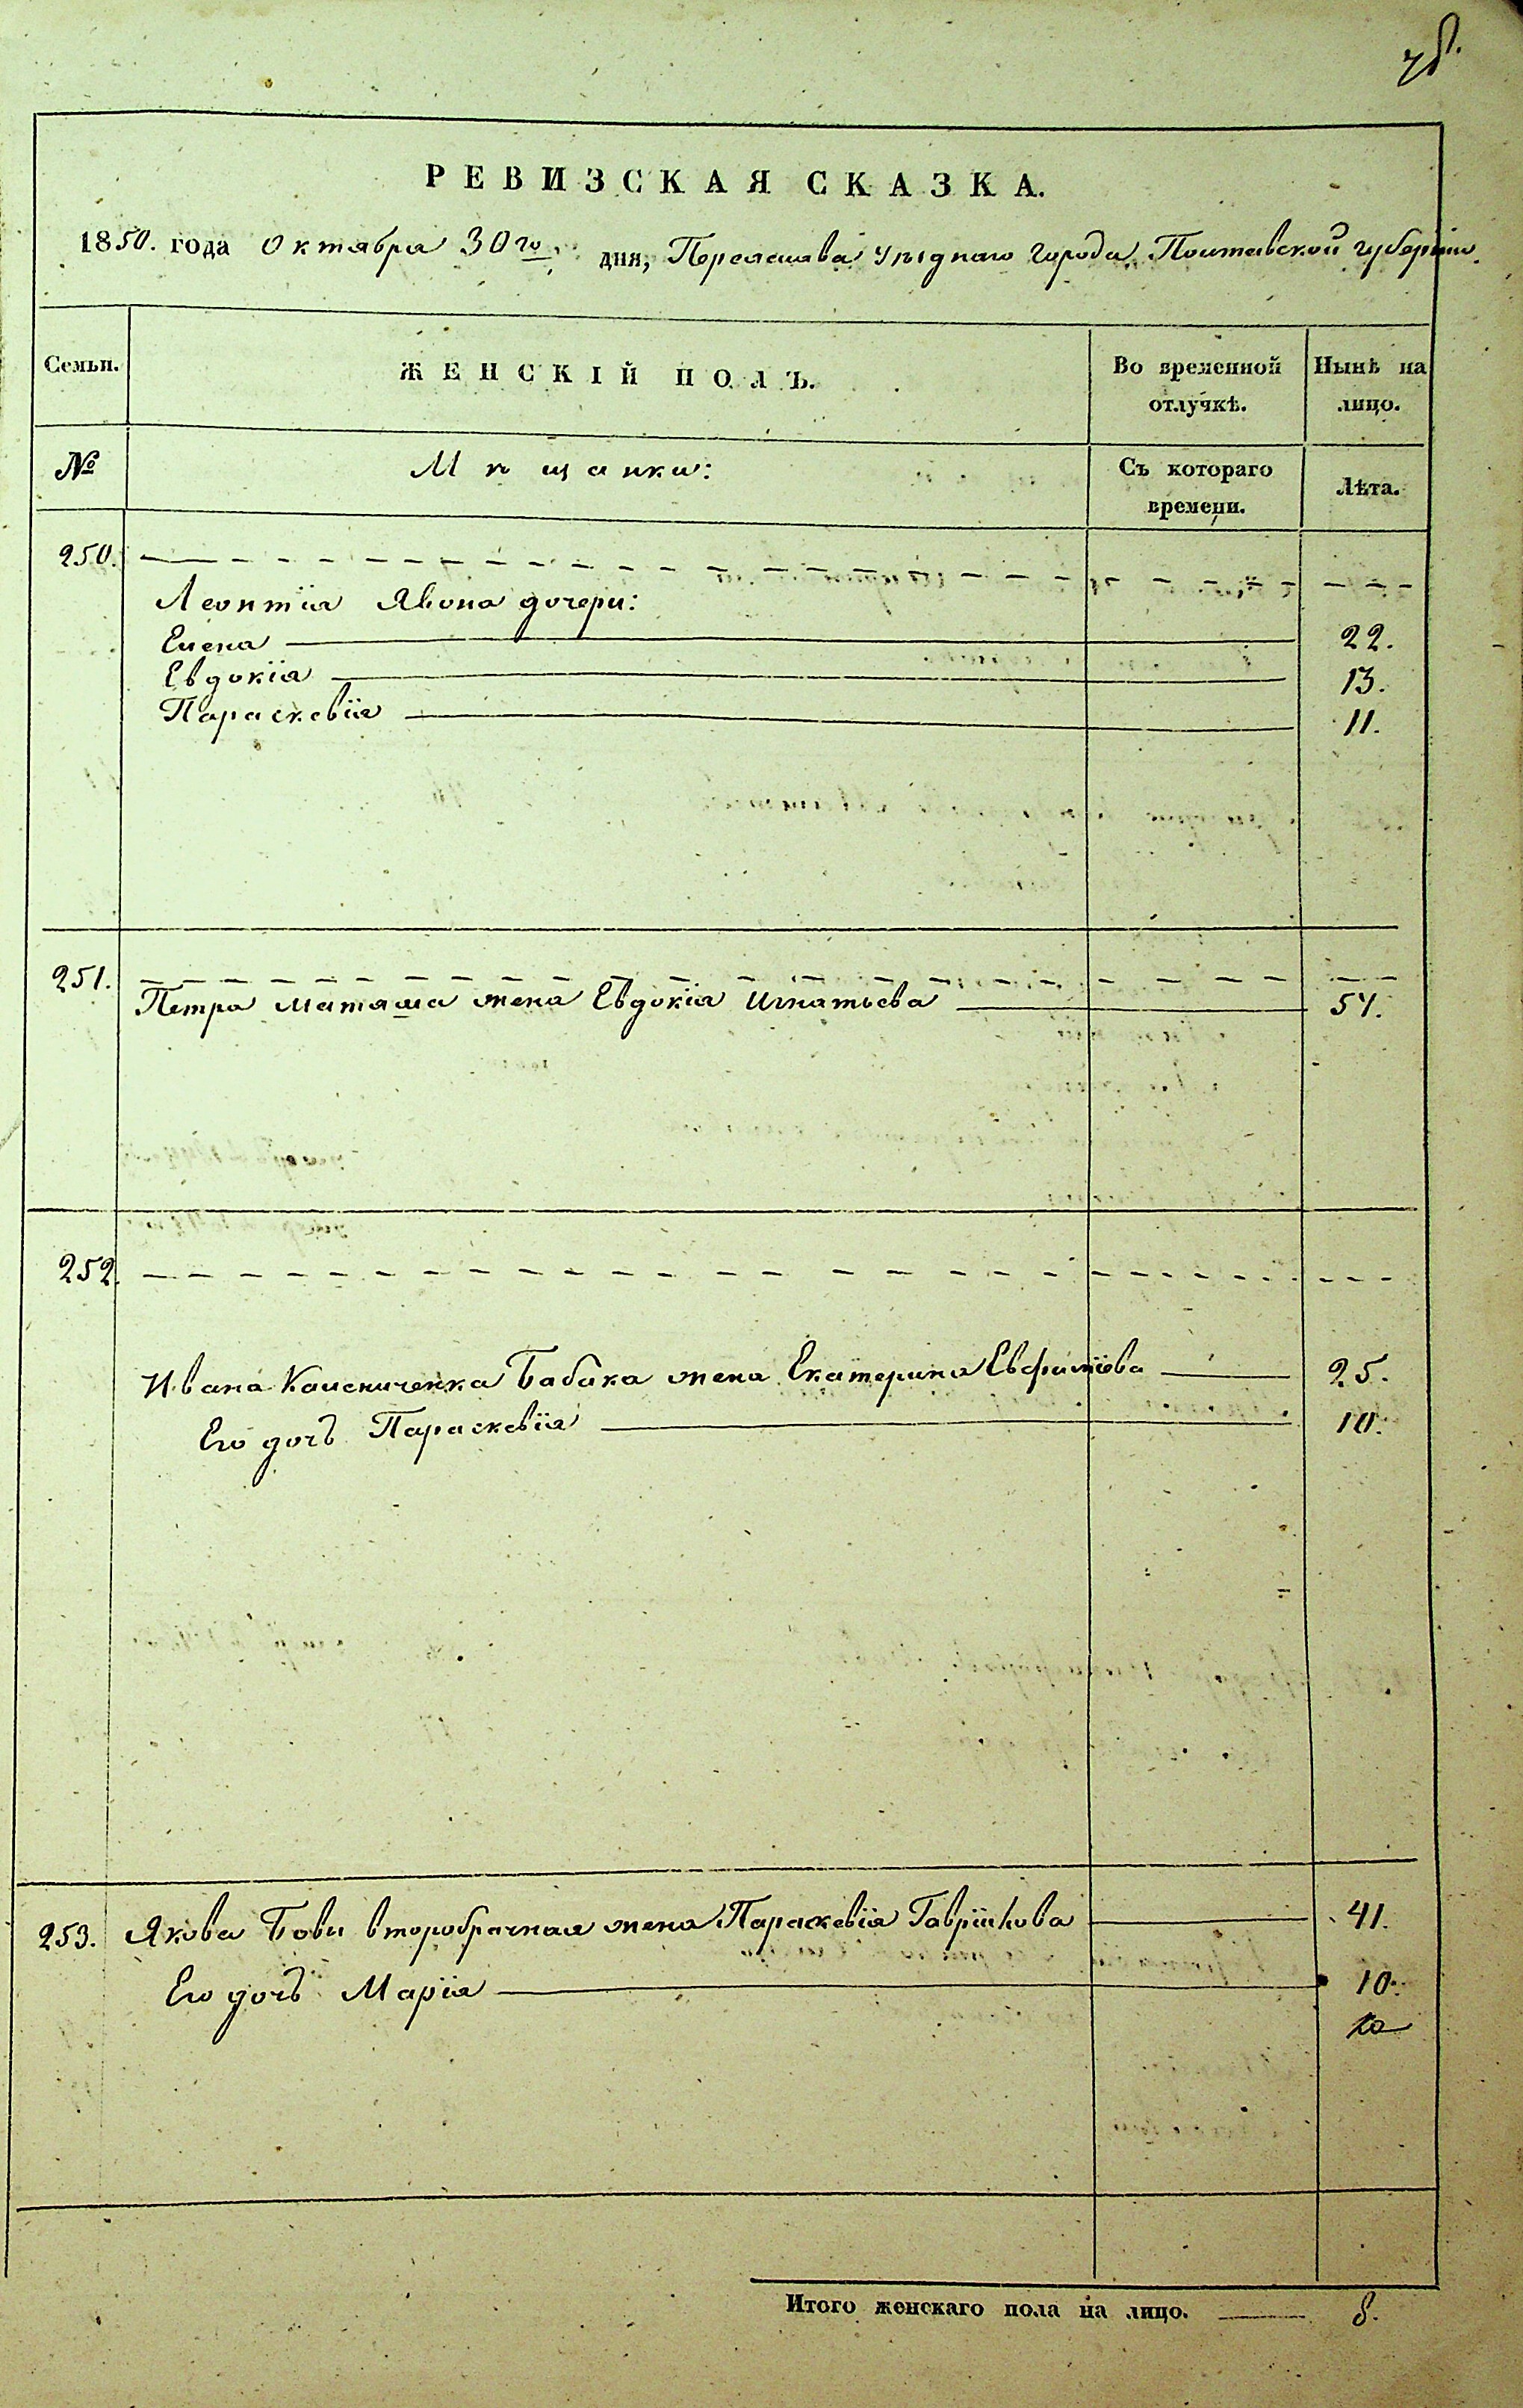 РЕВИЗСКАЯ СКАЗКА.
1850. года Октября 30го дня, Переяслава Уѣзднаго города Полтавской губерніи
Семьи.
ЖЕНСКІЙ ПОЛЪ.
Во временной отлучкѣ.
Нынѣ на лицо.
№
Мѣщанки:
Съ котораго времени.
Лѣта.
250.
Леонтія Явона дочери:
Елена 22.
Евдокія 13.
Параскевія 11.
251.
Петра Маташа жена Евдокія Игнатьева
252.
Ивана Бабака жена Екатерина Евфиміова 25.
Его дочь Параскевія 10.
253. Якова Бовы второбрачная жена Параскевія Гавріилова 41.
Его дочь Марія 10.
Итого женскаго пола на лицо. 8.